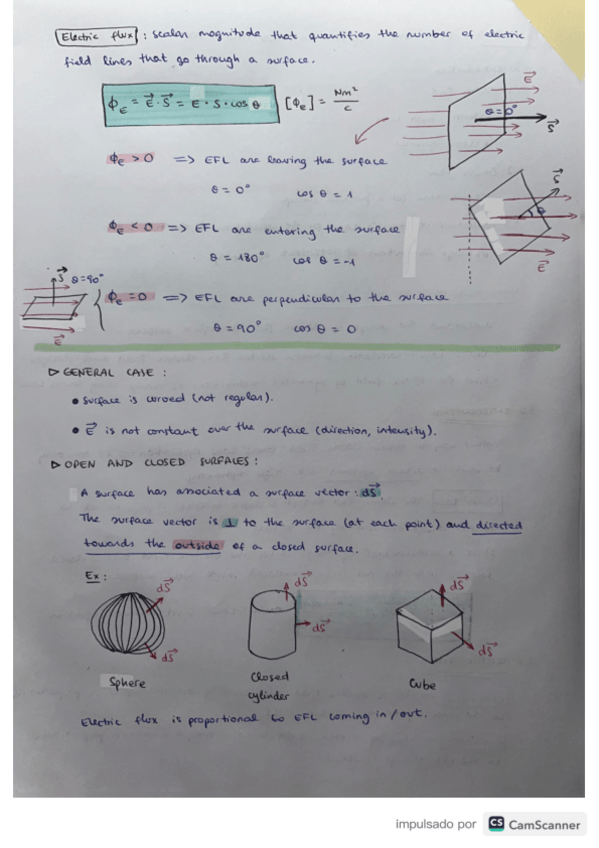 Electric flux : scalar magnitude that quantifies the number of electric
field lines that go through a surface.
ΦE = E⃗ · S⃗ = E · S · cos θ [ΦE] = Nm²/C
E⃗
θ=0°
S⃗
ΦE > 0 => EFL are leaving the surface
θ = 0° cos θ = 1
S⃗
θ
E⃗
ΦE < 0 => EFL are entering the surface
θ = 180° cos θ = -1
S⃗ θ=90°
E⃗
ΦE = 0 => EFL are perpendicular to the surface
θ = 90° cos θ = 0
▷ GENERAL CASE :
• Surface is curved (not regular).
• E⃗ is not constant over the surface (direction, intensity).
▷ OPEN AND CLOSED SURFACES :
A surface has associated a surface vector : dS⃗.
The surface vector is ⊥ to the surface (at each point) and directed
towards the outside of a closed surface.
Ex :
dS⃗ dS⃗ dS⃗
dS⃗ dS⃗ dS⃗
Sphere Closed cylinder Cube
Electric flux is proportional to EFL coming in/out.
impulsado por CS CamScanner